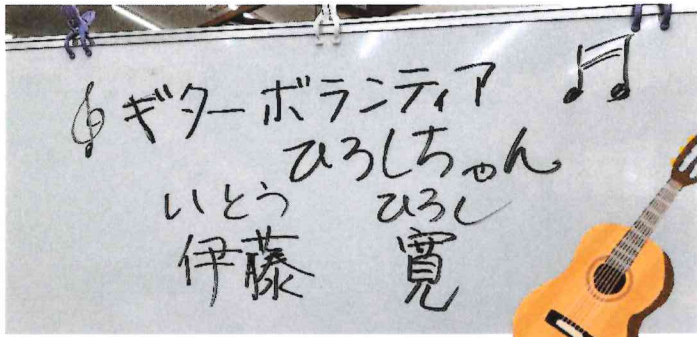 ギターボランティア
ひろしちゃん
いとう ひろし
伊藤 寛